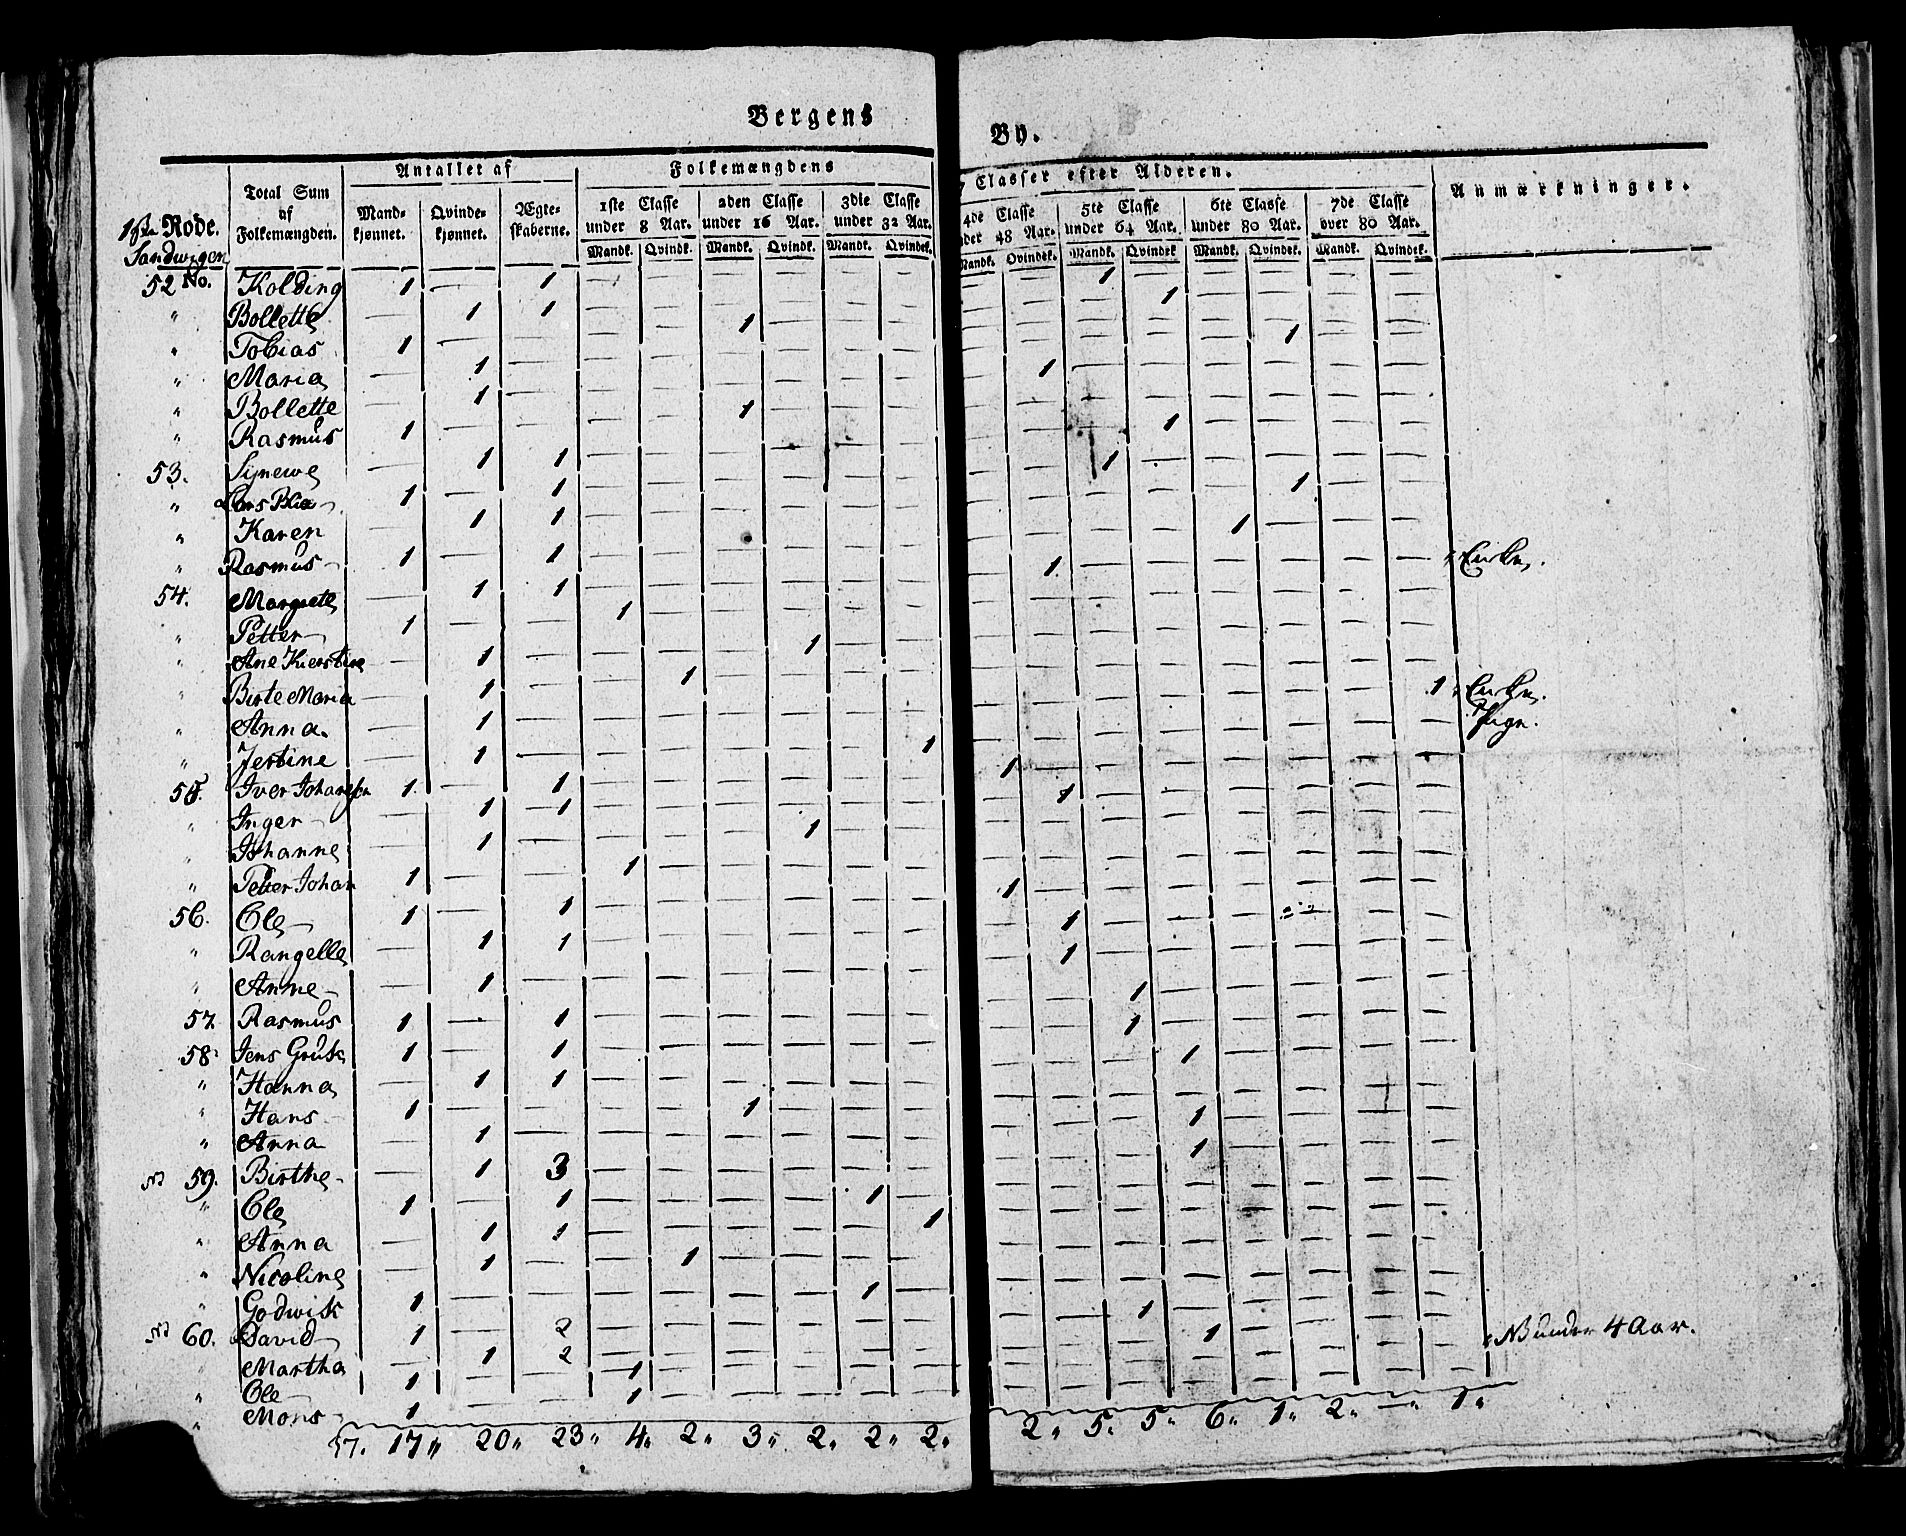 Bergens By.
Antallet af Folkemængdens 7 Classer efter Alderen.
Total Sum af Folkemængden. Mandkjønnet. Qvindekjønnet. Ægteskaberne. 1ste Classe under 8 Aar. 2den Classe under 16 Aar. 3die Classe under 32 Aar. 4de Classe under 48 Aar. 5te Classe under 64 Aar. 6te Classe under 80 Aar. 7de Classe over 80 Aar. Anmærkninger.
1ste Rode.
Sandwigen
Mandk. Qvindk. Mandk. Qvindk. Mandk. Qvindek. Mandk. Qvindek. Mandk. Qvindek Mandk. Qvindek. Mandk. Qvindek.
52 No. Kolding 1 — 1 — — — — — — — — 1 — — — — —
" Bollette — 1 1 — — — — — — — — — 1 — — — —
" Tobias 1 — — — — 1 — — — — — — — — — — —
" Maria — 1 — — — — — — — — — — — — 1 — —
" Bollette — 1 — — — — — — — — 1 — — — — — —
" Rasmus 1 — — — — 1 — — — — — — — — — — —
53. Synewe — 1 1 — — — — — — — — — 1 — — — —
" Lars Blix 1 — 1 — — — — — — — — 1 — — — — —
" Karen — 1 1 — — — — — — — — — — — 1 — —
" Rasmus 1 — 1 — — — — — — — — — — 1 — — —
54. Margrete — 1 1 — — — — — — — 1 — — — — — — Enke.
" Petter 1 — — 1 — — — — — — — — — — — — —
" Ane Kierstine — 1 — — — — 1 — — — — — — — — — —
" Birte Maria — 1 — — 1 — — — — — — — — — — — —
" Anna. — 1 — — — — — — — — — — — — — — 1 Enke.
" Jertine — 1 — — — — — — 1 — — — — — — — — Pige.
55. Iver Johansen 1 — 1 — — — — — — 1 — — — — — — —
" Inger — 1 1 — — — — — — — 1 — — — — — —
" Johanne — 1 — — — — 1 — — — — — — — — — —
" Petter Johan 1 — — 1 — — — — — — — — — — — — —
56. Ole 1 — 1 — — — — — — 1 — — — — — — —
" Rangelle — 1 1 — — — — — — — 1 — — — — — —
" Anne — 1 — — — — — — — — 1 — — — — — —
57. Rasmus 1 — 1 — — — — — — — — 1 — — — — —
58. Jens Gruk 1 — 1 — — — — — — — — 1 — — — — —
" Hanna — 1 1 — — — — — — — — — 1 — — — —
" Hans 1 — — — — 1 — — — — — — — — — — —
" Anna — 1 — — — — — — — — — — 1 — — — —
NB 59. Birthe — 1 3 — — — — — — — — — 1 — — — —
" Ole 1 — 1 — — — — 1 — — — — — — — — —
" Anna — 1 1 — — — — — 1 — — — — — — — —
" Nicoline — 1 — — 1 — — — — — — — — — — — —
" Godwik 1 — — — — — — 1 — — — — — — — — —
NB 60. David 1 — 2 — — — — — — — — 1 — — — — —
" Martha — 1 2 — — — — — — — — — 1 — — — — NB under 4 Aar.
" Ole 1 — — 1 — — — — — — — — — — — — —
" Mons 1 — — 1 — — — — — — — — — — — — —
37. 17" 20" 23" 4" 2" 3" 2" 2" 2" 2" 5" 5" 6" 1" 2" —" 1"